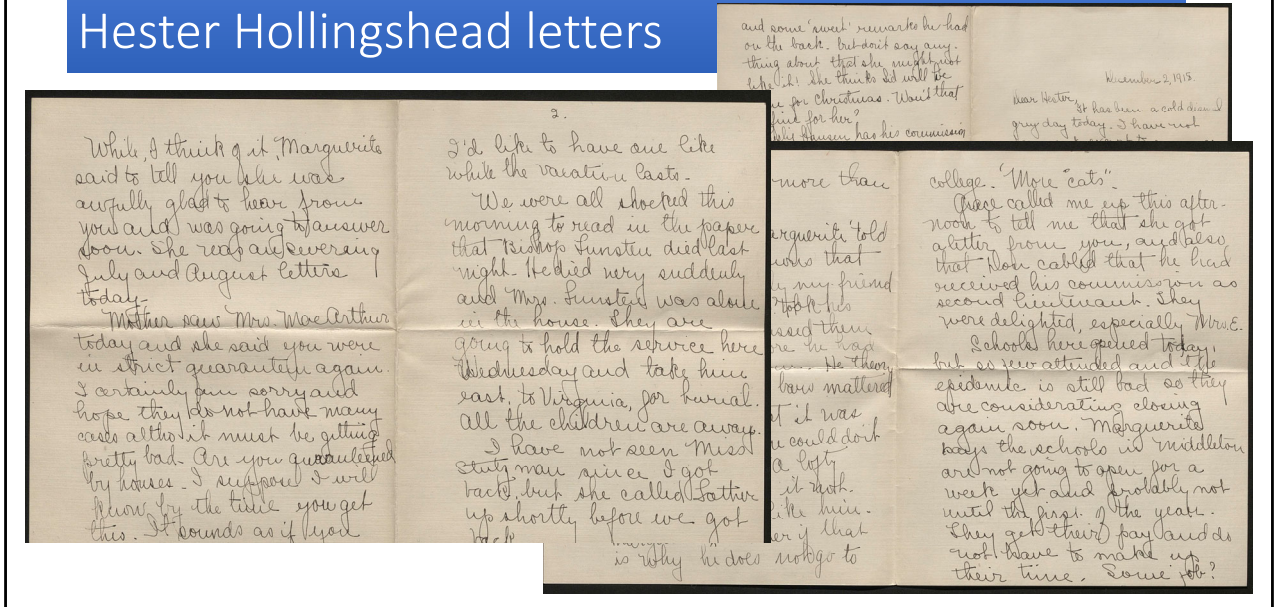 Hester Hollingshead letters
and some 'sweet' remarks he had
on the back. But don't say any-
thing about that she might not
like it! She thinks Sid will be
for Christmas. Won't that
fine for her?
Hansen has his commission
December 2, 1918.
Dear Hester,
It has been a cold and
grey day today. I have not
While I think of it, Marguerite
said to tell you she was
awfully glad to hear from
you and was going to answer
soon. She reap answering
July and August letters
today-
Mother saw Mrs. MacArthur
today and she said you were
in strict quarantine again.
I certainly am sorry and
hope they do not have many
cases altho it must be getting
pretty bad. Are you quarantined
by houses. I suppose I will
know by the time you get
this. It sounds as if you
2.
I'd like to have one like
while the vacation lasts.
We were all shocked this
morning to read in the paper
that Bishop Funsten died last
night. He died very suddenly
and Mrs. Funsten was alone
in the house. They are
going to hold the service here
Wednesday and take him
east, to Virginia, for burial.
All the children are away.
I have not seen Miss
Stutzman since I got
back, but she called Father
up shortly before we got
back
more than
Marguerite told
that
my friend
took his
them
he had
He theory
bars mattered
it was
could don't
a lofty
it not.
like him.
if that
is why he does not go to
college. "More "cats".
Grace called me up this after-
noon to tell me that she got
a letter from you, and also
that Don cabled that he had
received his commission as
second lieutenant. They
were delighted, especially Mrs. E.
Schools here opened today,
but so few attended and the
epidemic is still bad so they
are considerating closing
again soon. Marguerite
says the schools in Middleton
are not going to open for a
week yet and probably not
until the first of the year.
They get their pay and do
not have to make up
their time. Some job?